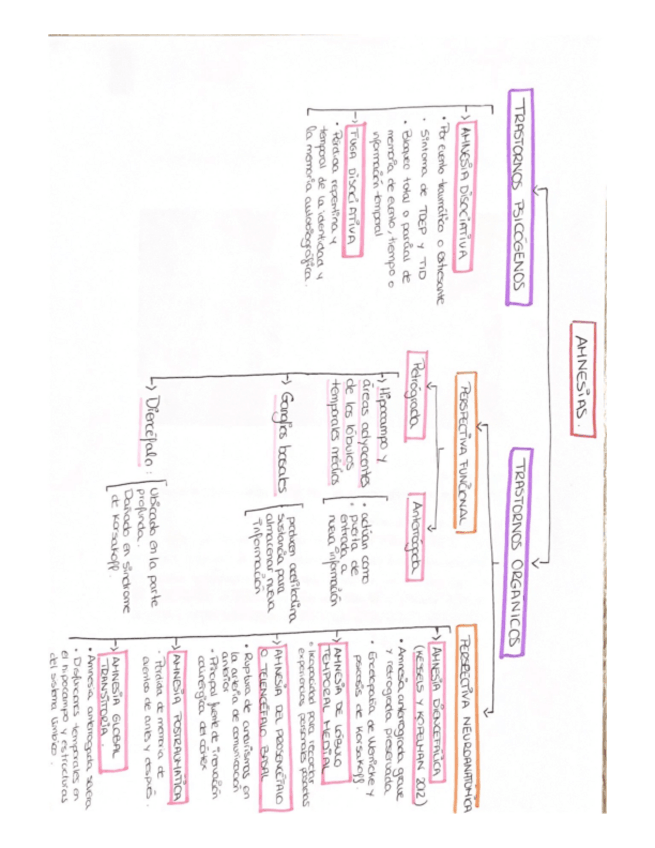 AMNESIAS.
TRASTORNOS PSICÓGENOS
-> AMNESIA DISOCIATIVA
• Por evento traumático o estresante
• Síntoma de TDEP y TID
• Bloqueo total o parcial de
memoria de evento, tiempo o
información temporal
-> FUGA DISOCIATIVA
• Pérdida repentina y
temporal de la identidad y
la memoria autobiográfica.
TRASTORNOS ORGÁNICOS
PERSPECTIVA FUNCIONAL
Retrógrada
Anterógrada
-> Hipocampo y
áreas adyacentes
de los lóbulos
temporales medios
• actúan como
puerta de
entrada a
nueva información
-> Ganglios basales
producen acetilcolina
sustancia para
almacenar nueva
información
-> Diencéfalo:
Ubicado en la parte
profunda.
Dañado en síndrome
de Korsakoff.
PERSPECTIVA NEUROANATÓMICA
-> AMNESIA DIENCEFÁLICA
(KESSELS Y KOPELMAN 2012)
• Amnesia anterograda grave
y retrograda preservada
• Encefalopatía de Wernicke y
psicosis de Korsakoff.
-> AMNESIA DE LÓBULO
TEMPORAL MEDIAL
• Incapacidad para recordar
experiencias personales pasadas
-> AMNESIA DEL PROSENCÉFALO
O TELENCÉFALO BASAL
• Ruptura de aneurismas en
la arteria de comunicación
anterior
• Principal fuente de inervación
colinérgica del córtex
-> AMNESIA POSTRAUMÁTICA
• Pérdida de memoria de
eventos de antes y después.
-> AMNESIA GLOBAL
TRANSITORIA.
• Amnesia anterograda severa
• Disfunciones temporales en
el hipocampo y estructuras
del sistema límbico.